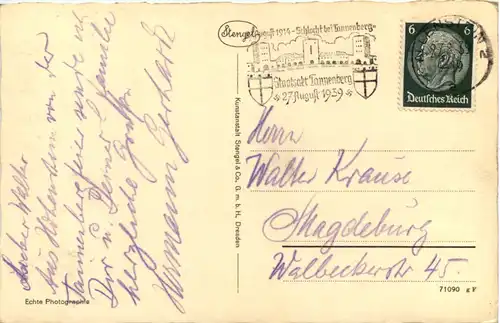 Lieber Walter
Aus Hohenstein von der
Tannenbergfeier sende ich
Dir u. Deiner Familie
herzliche Grüße
Hermann Gerhardt
Echte Photographie
Kunstanstalt Stengel & Co., G. m. b. H., Dresden
Stengel
August 1914 - Schlacht bei Tannenberg -
Staatsakt Tannenberg
27. August 1939
6 6
Deutsches Reich
Herrn
Walter Krause
Magdeburg
Walbeckerstr 45.
71090 g F